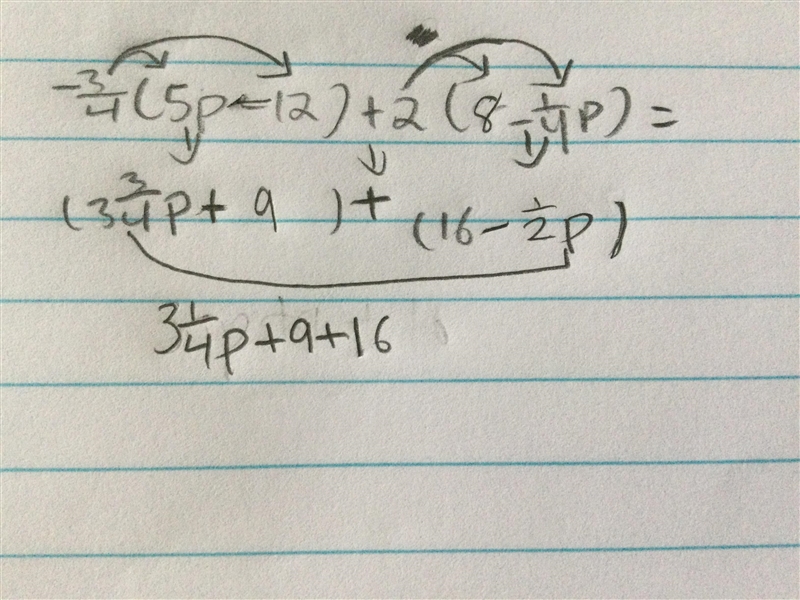 -3/4(5p-12)+2(8-1/4p)=
(3 3/4p+9)+(16-1/2p)
3 1/4p+9+16